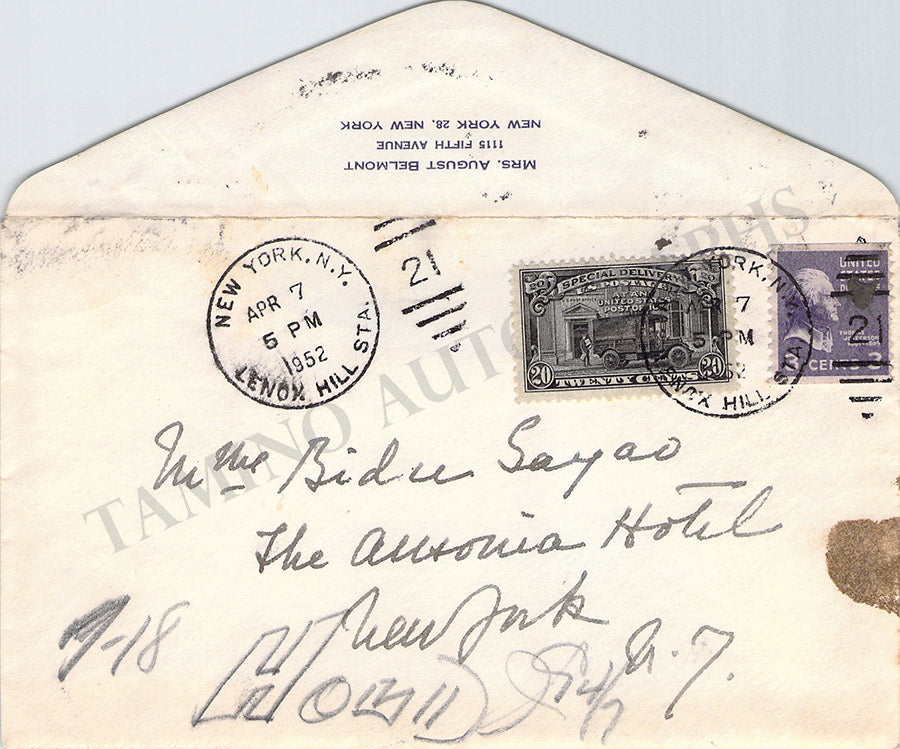 MRS. AUGUST BELMONT
1115 FIFTH AVENUE
NEW YORK 28, NEW YORK
NEW YORK, N.Y.
APR 7
5 PM
1952
LENOX HILL STA.
21
20 SPECIAL DELIVERY 20
U.S. POSTAGE
20 TWENTY CENTS 20
YORK, N.Y.
7
5 PM
52
LENOX HILL STA
UNITED
STATES
THOMAS
JEFFERSON
CENTS 3
21
TAMINO AUTOGRAPHS
Mme Bidu Sayao
The Ansonia Hotel
New York
N. Y.
9-18